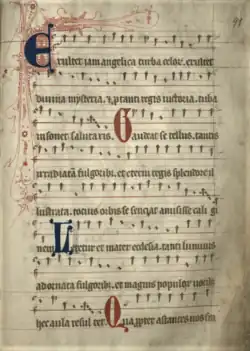 Exultet iam angelica turba celor. exultet
diuina mysteria. & p tanti regis uictoria. tuba
insonet salutaris. Gaudeat se tellus tantis
irradiata fulgorib. et eterni regis splendore il
lustrata. tocius orbis se senciat amisisse cali gi
nem Letetur et mater ecclesia. tanti luminis
adornata fulgorib. et magnis populor uocib.
hec aula resul tet. Qua propter astantes uos